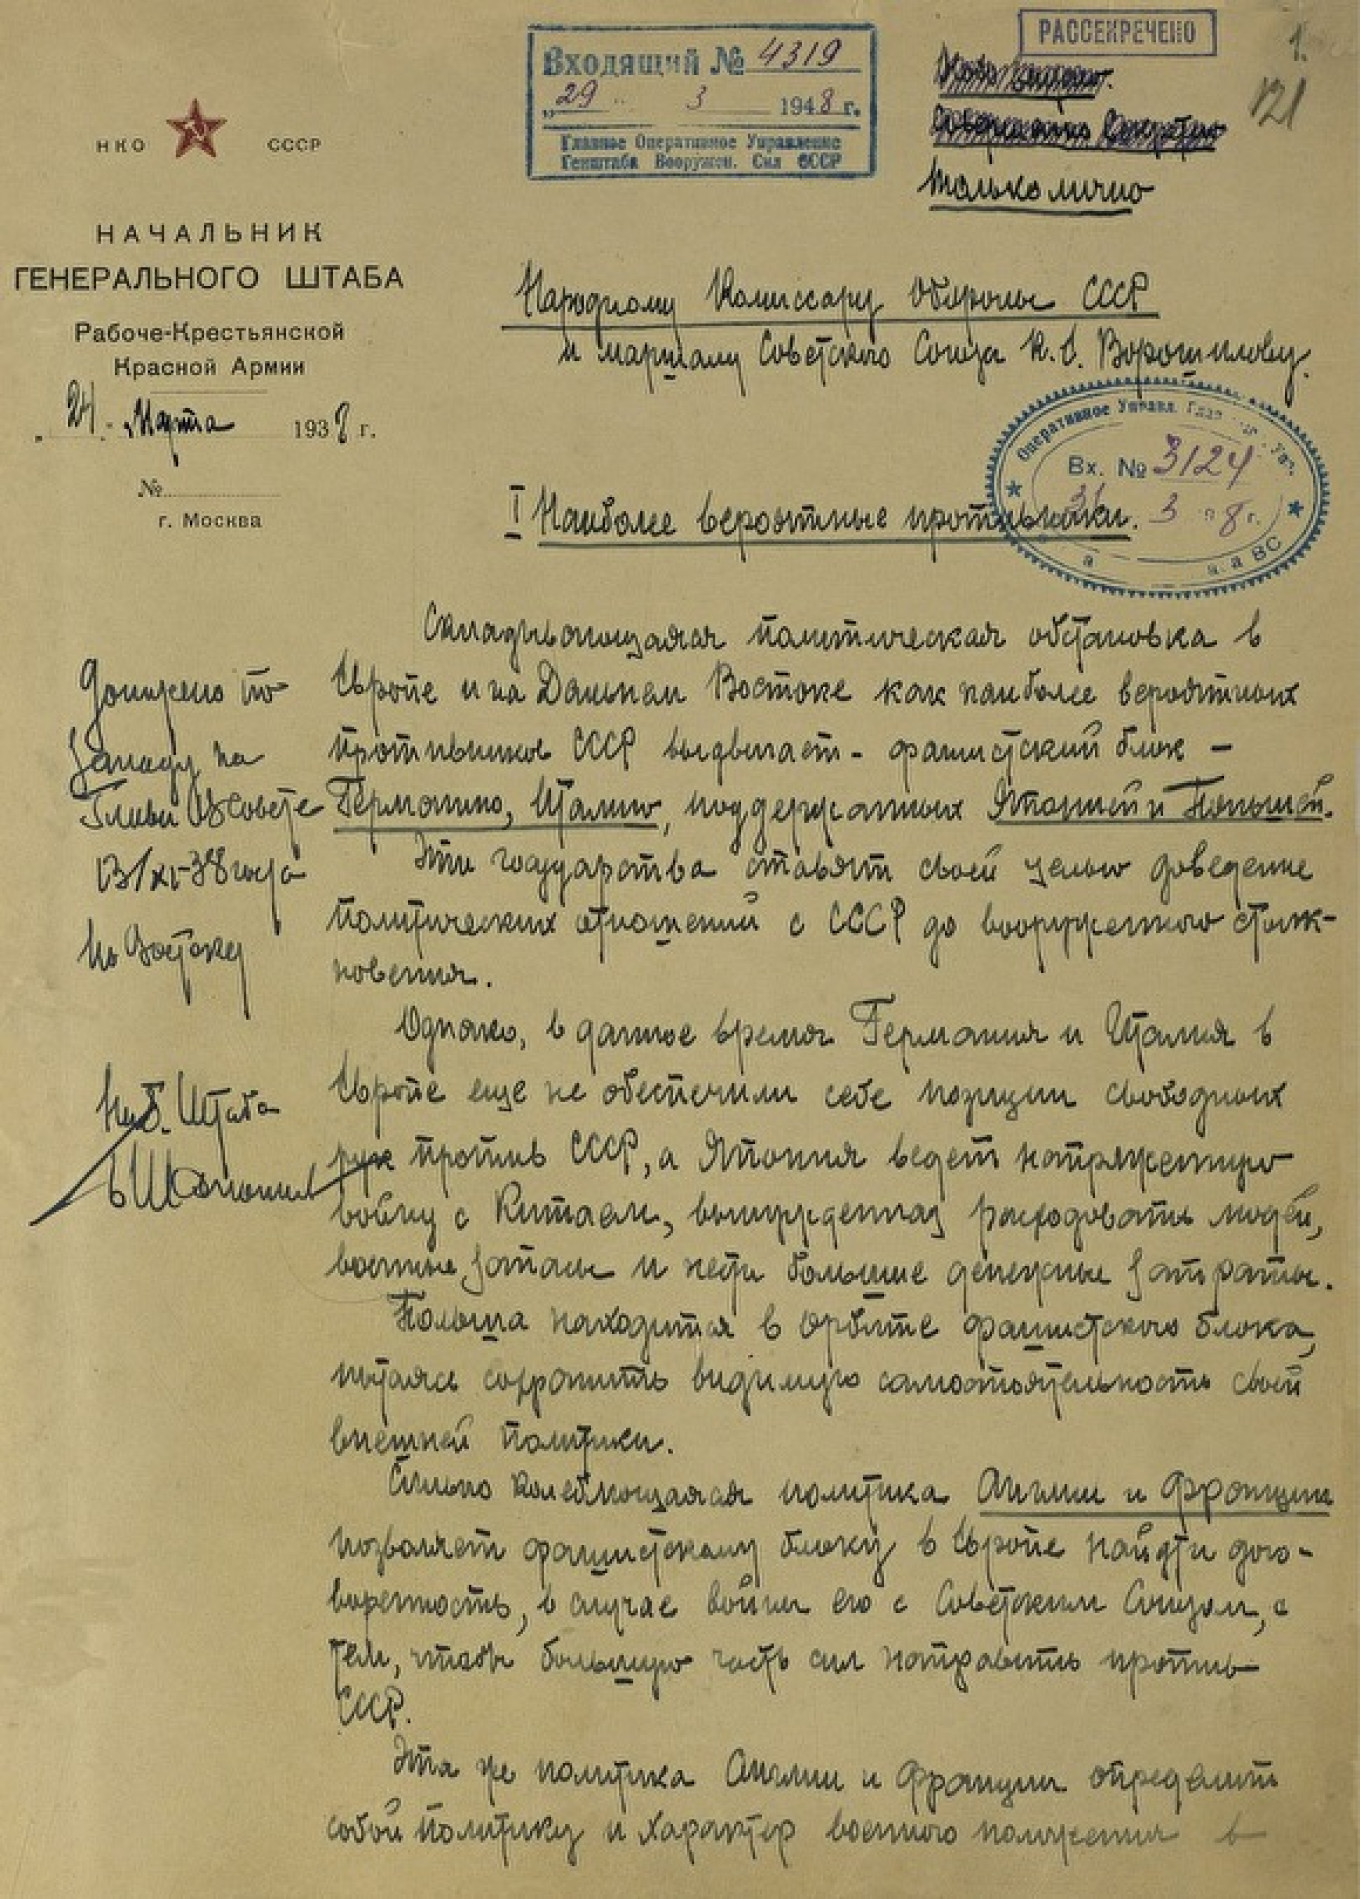 РАССЕКРЕЧЕНО
1.
121
Входящий № 4319
„29" 3 1948 г.
Главное Оперативное Управление
Генштаба Вооружен. Сил СССР
только лично
НКО СССР
НАЧАЛЬНИК
ГЕНЕРАЛЬНОГО ШТАБА
Рабоче-Крестьянской
Красной Армии
„24" Марта 1938 г.
№
г. Москва
Народному Комиссару Обороны СССР
маршалу Советского Союза К.Е. Ворошилову.
Оперативное Управл.
Вх. № 3124
31 3 8 г.
I Наиболее вероятные противники.
Складывающаяся политическая обстановка в
Европе и на Дальнем Востоке как наиболее вероятных
противников СССР выдвигает - фашистский блок -
Германию, Италию, поддержанных Японией и Польшей.
Эти государства ставят своей целью доведение
политических отношений с СССР до вооруженного столк-
новения.
Однако, в данное время Германия и Италия в
Европе еще не обеспечили себе позиции свободных
рук против СССР, а Япония ведет напряженную
войну с Китаем, вынужденная расходовать людей,
военные запасы и нести большие денежные затраты.
Польша находится в орбите фашистского блока,
пытаясь сохранить видимую самостоятельность своей
внешней политики.
Сильно колеблющаяся политика Англии и Франции
позволяет фашистскому блоку в Европе найти дого-
воренность, в случае войны его с Советским Союзом, с
тем, чтобы большую часть сил направить против
СССР.
Эта же политика Англии и Франции определит
собой политику и характер военного положения в
Доложено по
Западу на
Главн. В Совете
13/XI-38 года
по Востоку
Нач. Г. Штаба
БШапошников